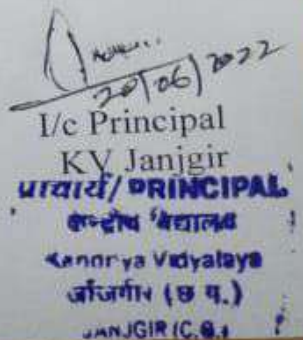 20/06/2022
I/c Principal
KV Janjgir
प्राचार्य/ PRINCIPAL
केन्द्रीय विद्यालय
Kendriya Vidyalaya
जाँजगीर (छ.ग.)
JANJGIR (C.G.)